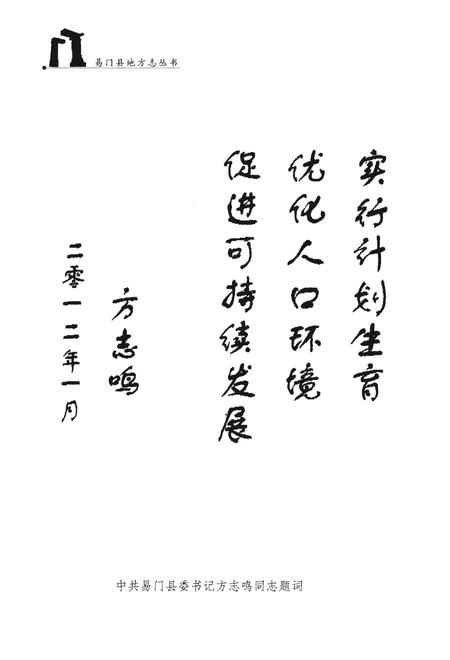 易门县地方志丛书
实行计划生育
优化人口环境
促进可持续发展
方志鸣
二零一二年一月
中共易门县委书记方志鸣同志题词